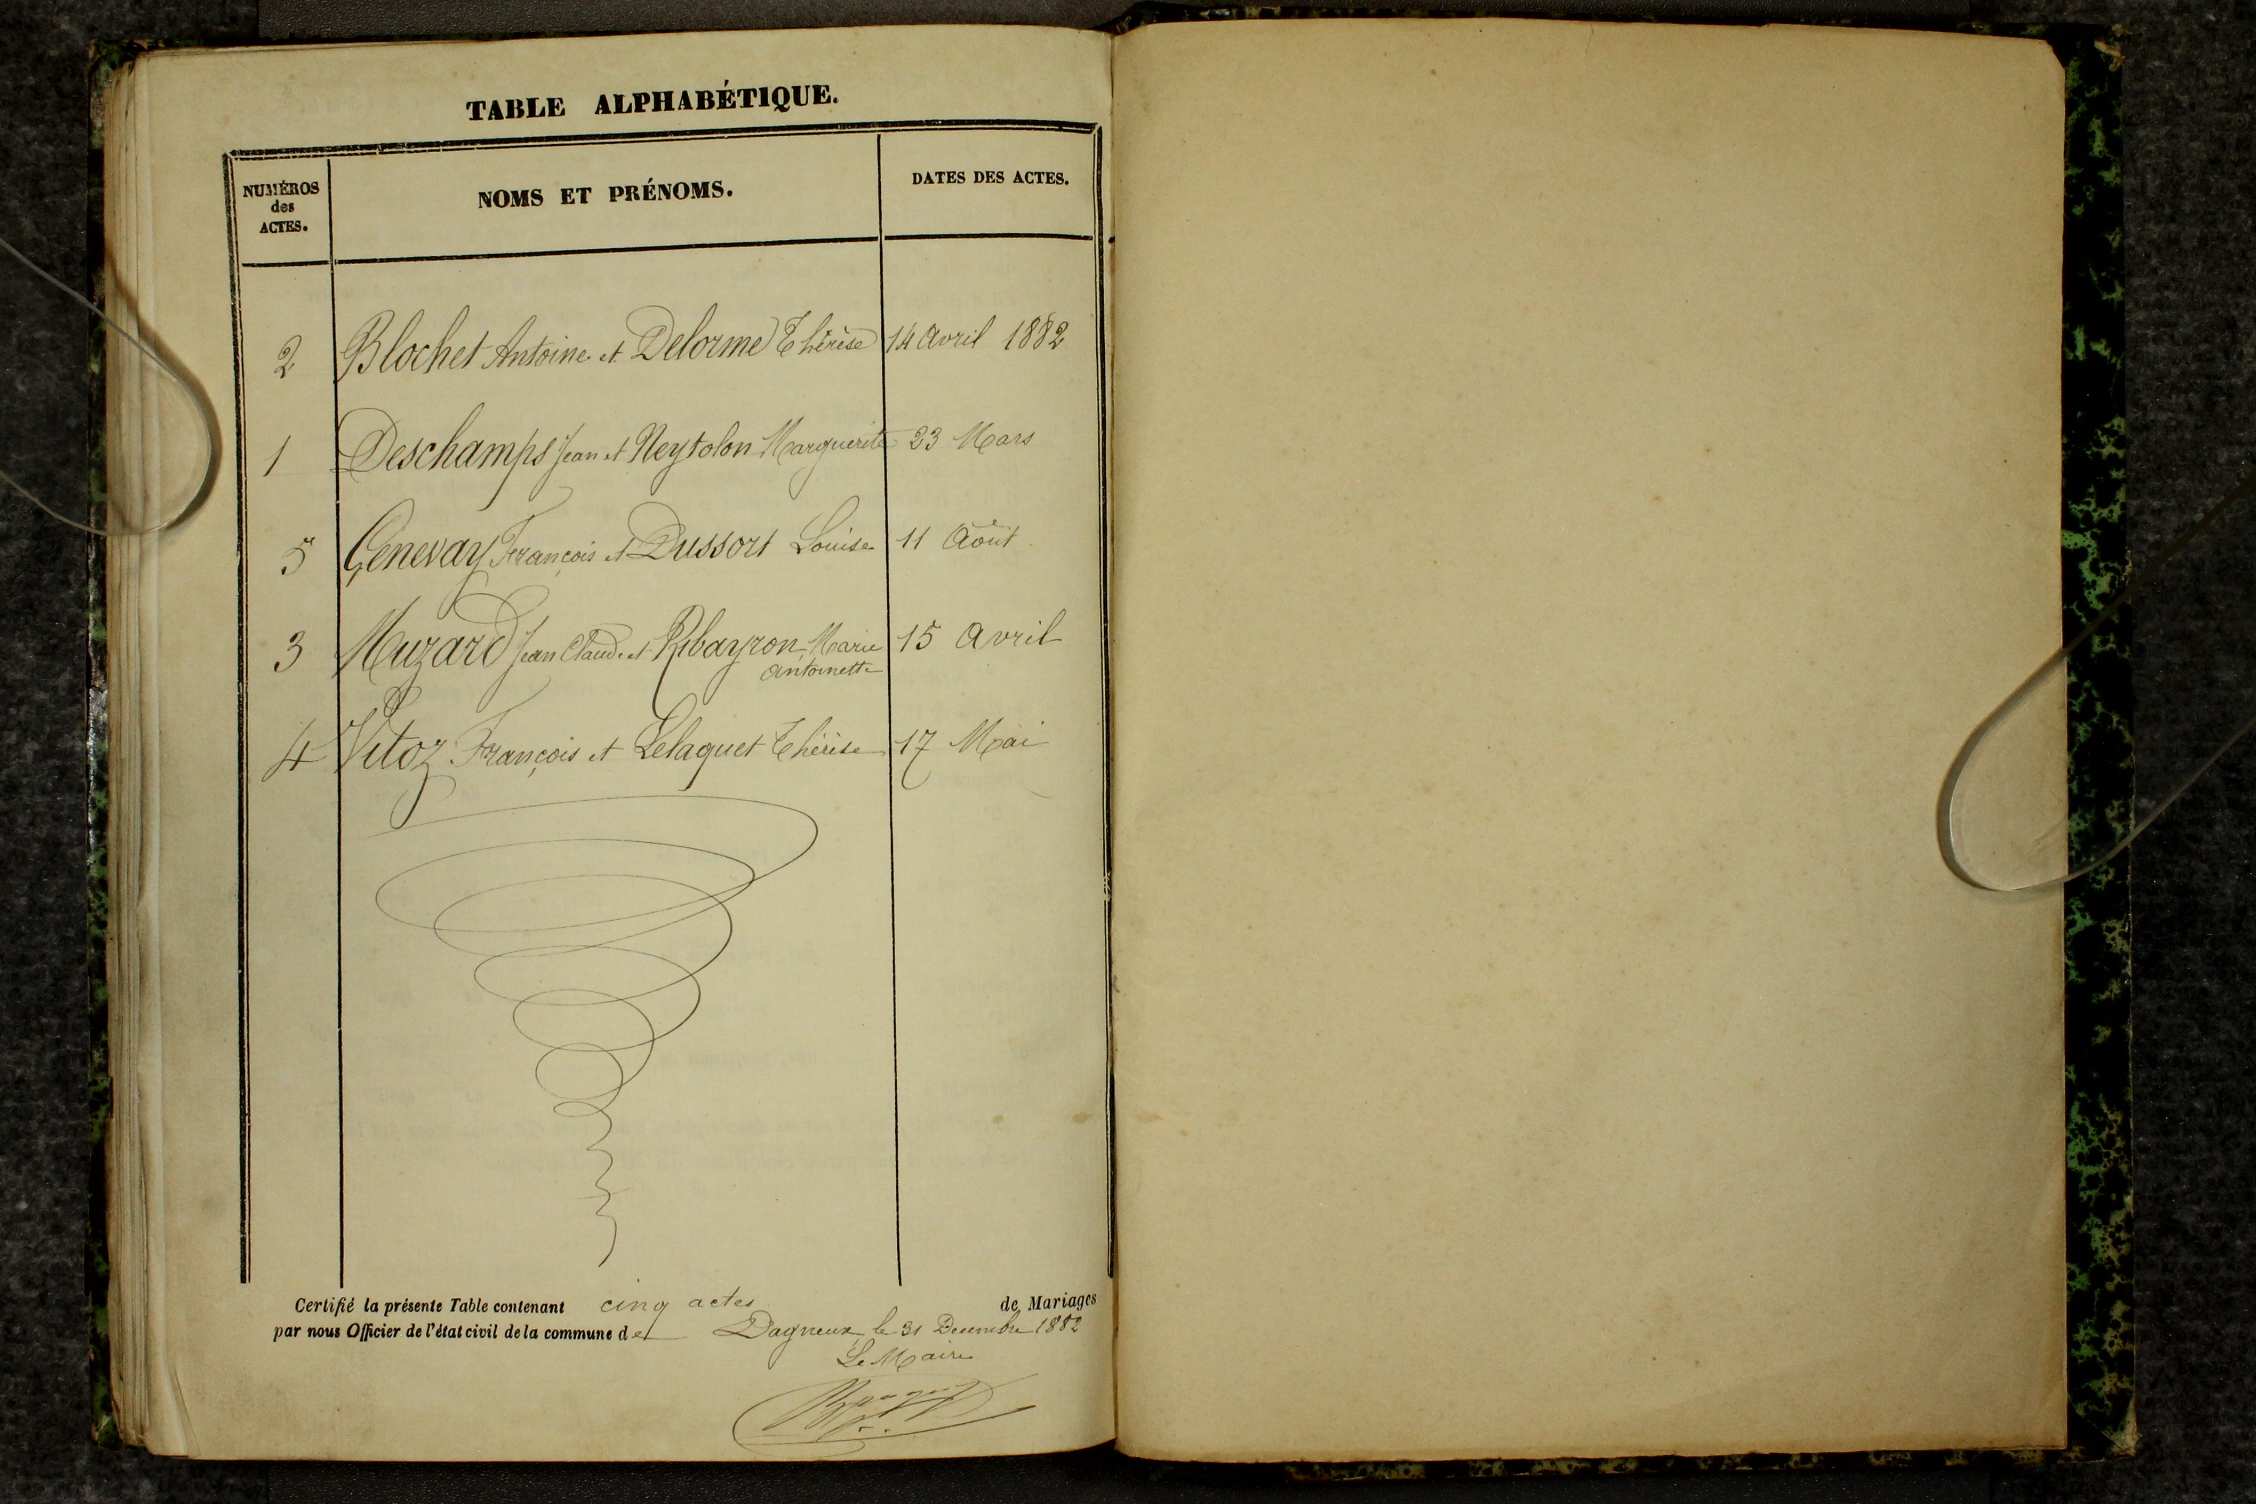 TABLE ALPHABÉTIQUE.
NUMÉROS
des
ACTES.
NOMS ET PRÉNOMS.
DATES DES ACTES.
2 Blochet Antoine et Delorme Thérèse 14 Avril 1882
1 Deschamps Jean et Neytolon Marguerite 23 Mars
5 Genevay François et Dussort Louise 11 Août
3 Muzard Jean Claude et Ribayron Marie 15 Avril
Antoinette
4 Vitoz François et Lelaquet Thérèse 17 Mai
Certifié la présente Table contenant cinq actes de Mariages
par nous Officier de l'état civil de la commune de Dagneux le 31 Decembre 1882
Le Maire